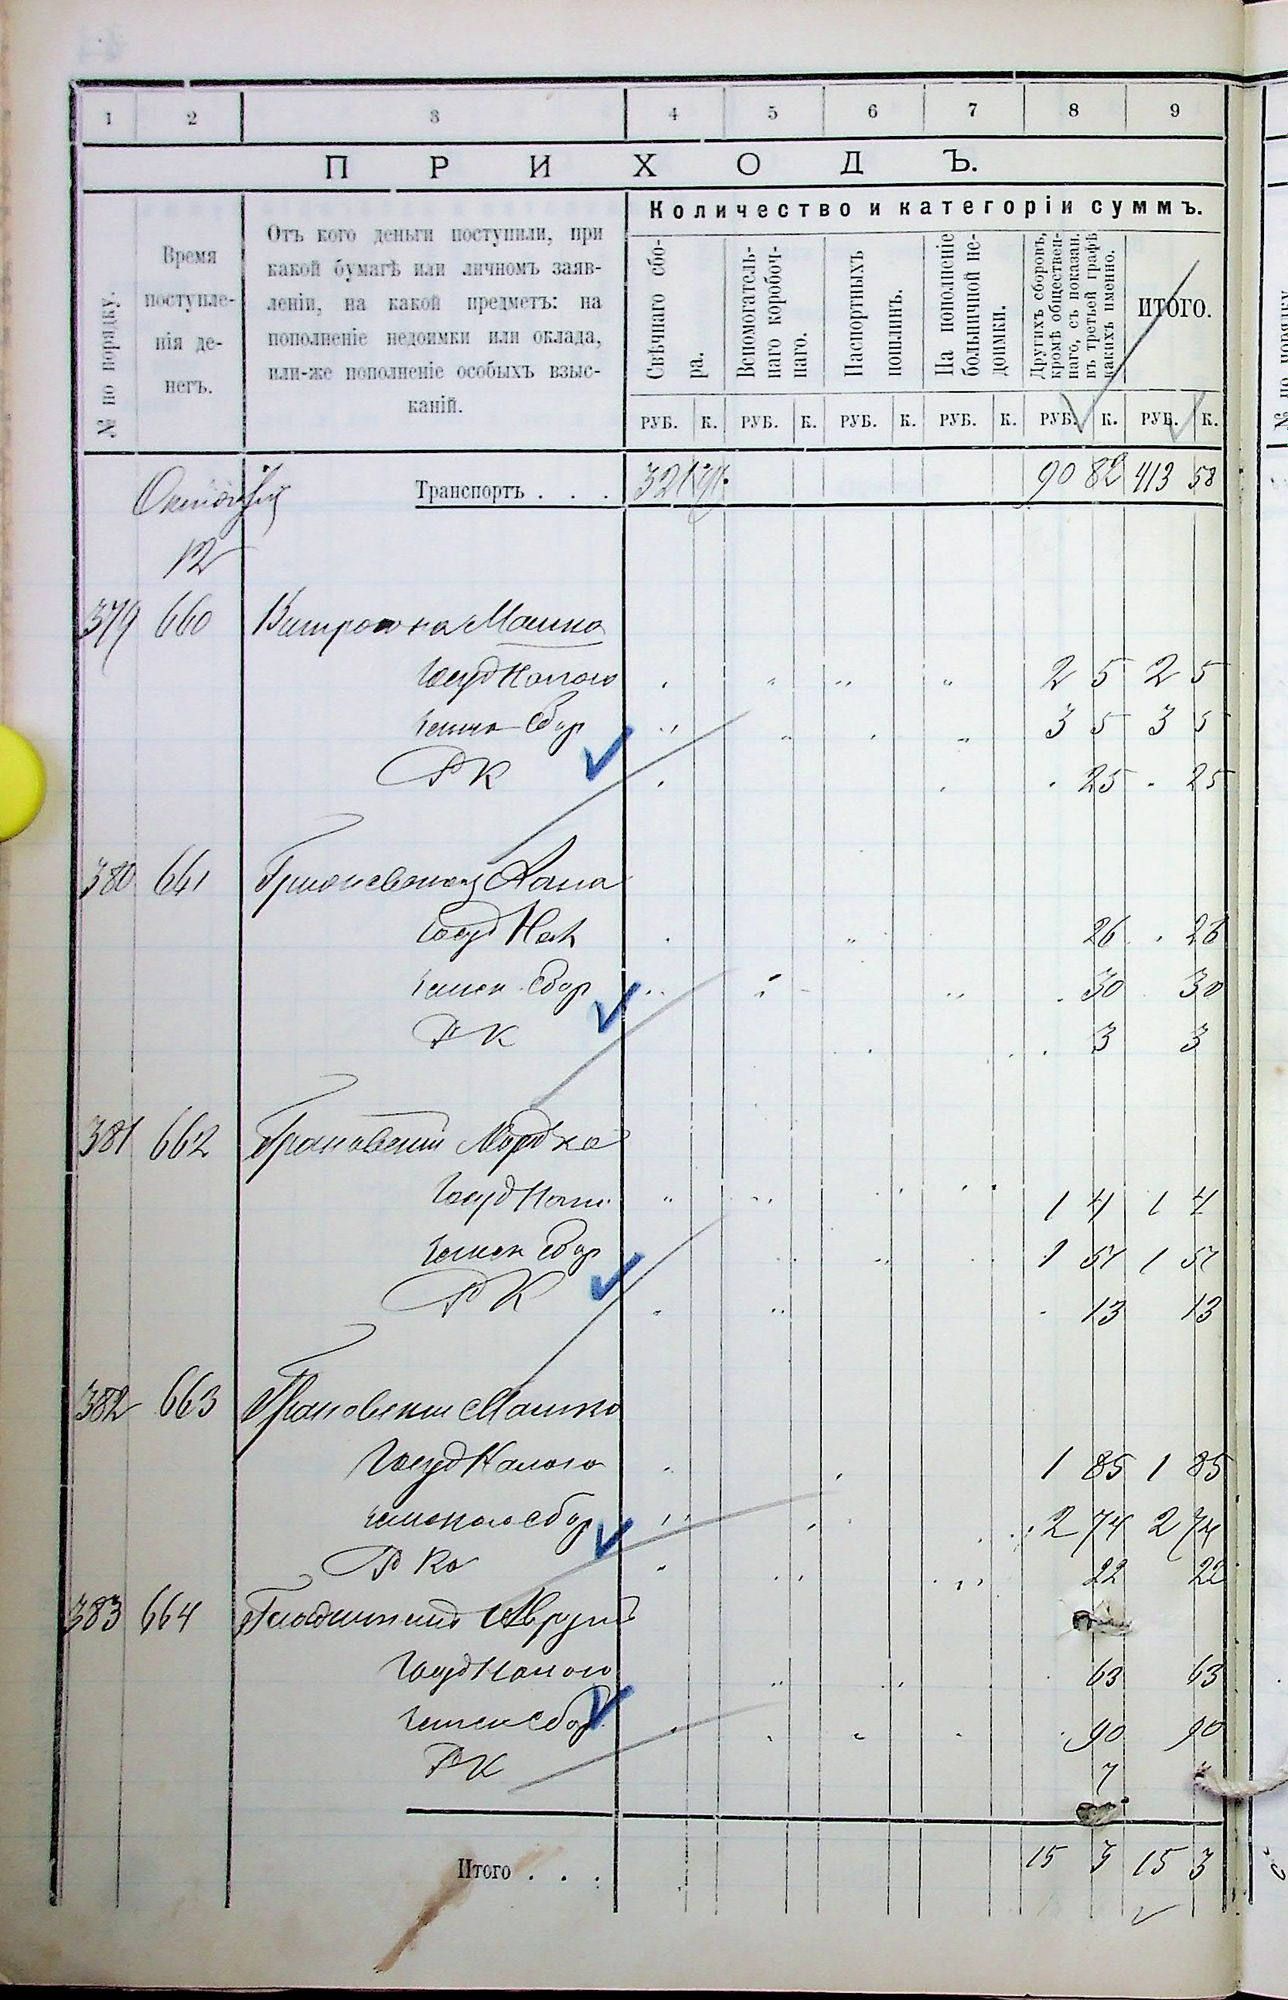 1 2 3 4 5 6 7 8 9
ПРИХОДЪ.
Количество и категоріи суммъ.
№ по порядку.
Время
поступле-
нія де-
негъ.
Отъ кого деньги поступили, при
какой бумагѣ или личномъ заяв-
леніи, на какой предметъ: на
пополненіе недоимки или оклада,
или-же пополненіе особыхъ взыс-
каній.
Свѣчнаго сбо-
ра.
Вспомогатель-
наго коробоч-
наго.
Паспортныхъ
пошлинъ.
На пополненіе
больничной не-
доимки.
Другихъ сборовъ,
кромѣ обществен-
наго, съ показан.
въ третьей графѣ
какихъ именно.
ИТОГО.
РУБ. К. РУБ. К. РУБ. К. РУБ. К. РУБ. К. РУБ. К.
Октября Транспортъ . . . 90 82 413 58
12
379 660 Мошко
Госуд Налого 2 5 2 5
Сбор 3 5 3 5
РК 25 25
380 661
Госуд Нал 26 26
Сбор 30 30
РК 3 3
381 662 Грановский Мордко
Госуд Нал 1 4 1 4
Сбор 1 51 1 51
РК 13 13
382 663 Грановский Мошко
Госуд Налого 1 85 1 85
сбор 2 74 2 74
Р Ко 22 22
383 664 Аврум
Госуд Налого 63 63
сбор 90 90
РК 7
Итого . . . 15 3 15 3